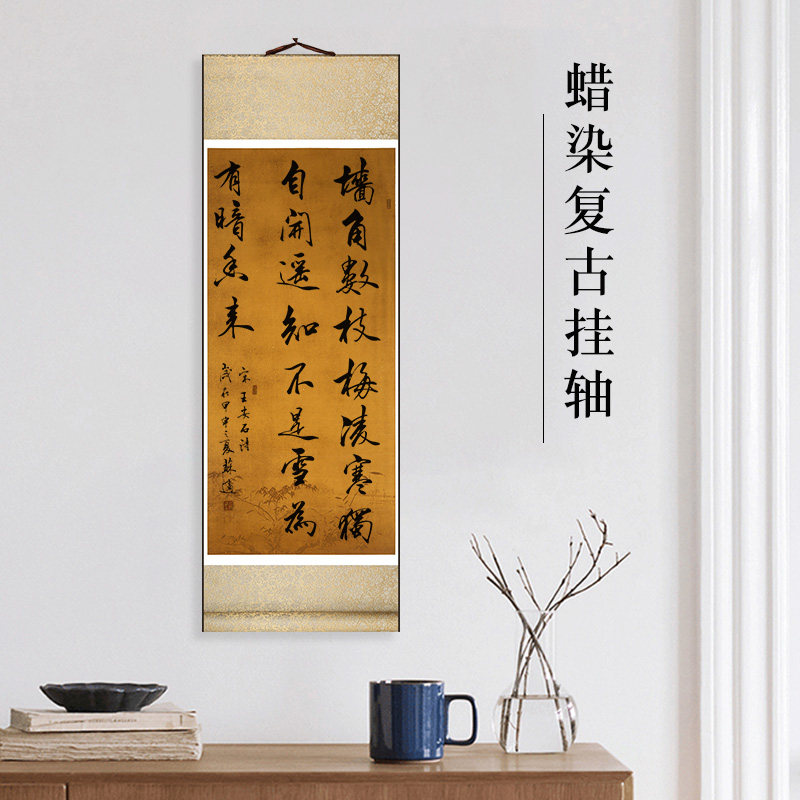 蜡染复古挂轴
墙角数枝梅凌寒獨
自開遥知不是雪為
有暗香来
宋王安石诗
歲在甲申之夏蘇